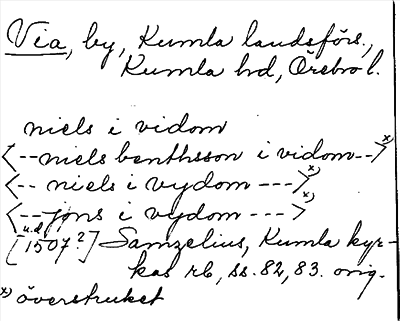 Via, by, Kumla landsförs.,
Kumla hd, Örebro l.
niels i vidom
<--niels benthsson i vidom--> x)
<-- niels i vydom ---> x)
<--jöns i vydom ---> x)
u.d.
[1507?] Samzelius, Kumla kyr-
kas rb, ss. 82, 83. orig.
x) överstruket